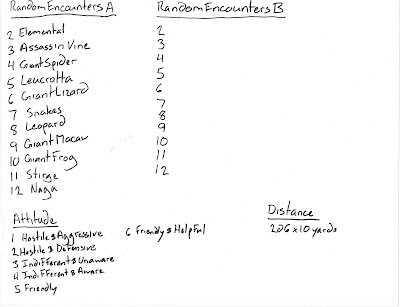 Random Encounters A
2 Elemental
3 Assassin Vine
4 Giant Spider
5 Leucrotta
6 Giant Lizard
7 Snakes
8 Leopard
9 Giant Macaw
10 Giant Frog
11 Stirge
12 Naga
Random Encounters B
2
3
4
5
6
7
8
9
10
11
12
Attitude
1 Hostile & Aggressive
2 Hostile & Defensive
3 Indifferent & Unaware
4 Indifferent & Aware
5 Friendly
6 Friendly & Helpful
Distance
2D6 x 10 yards